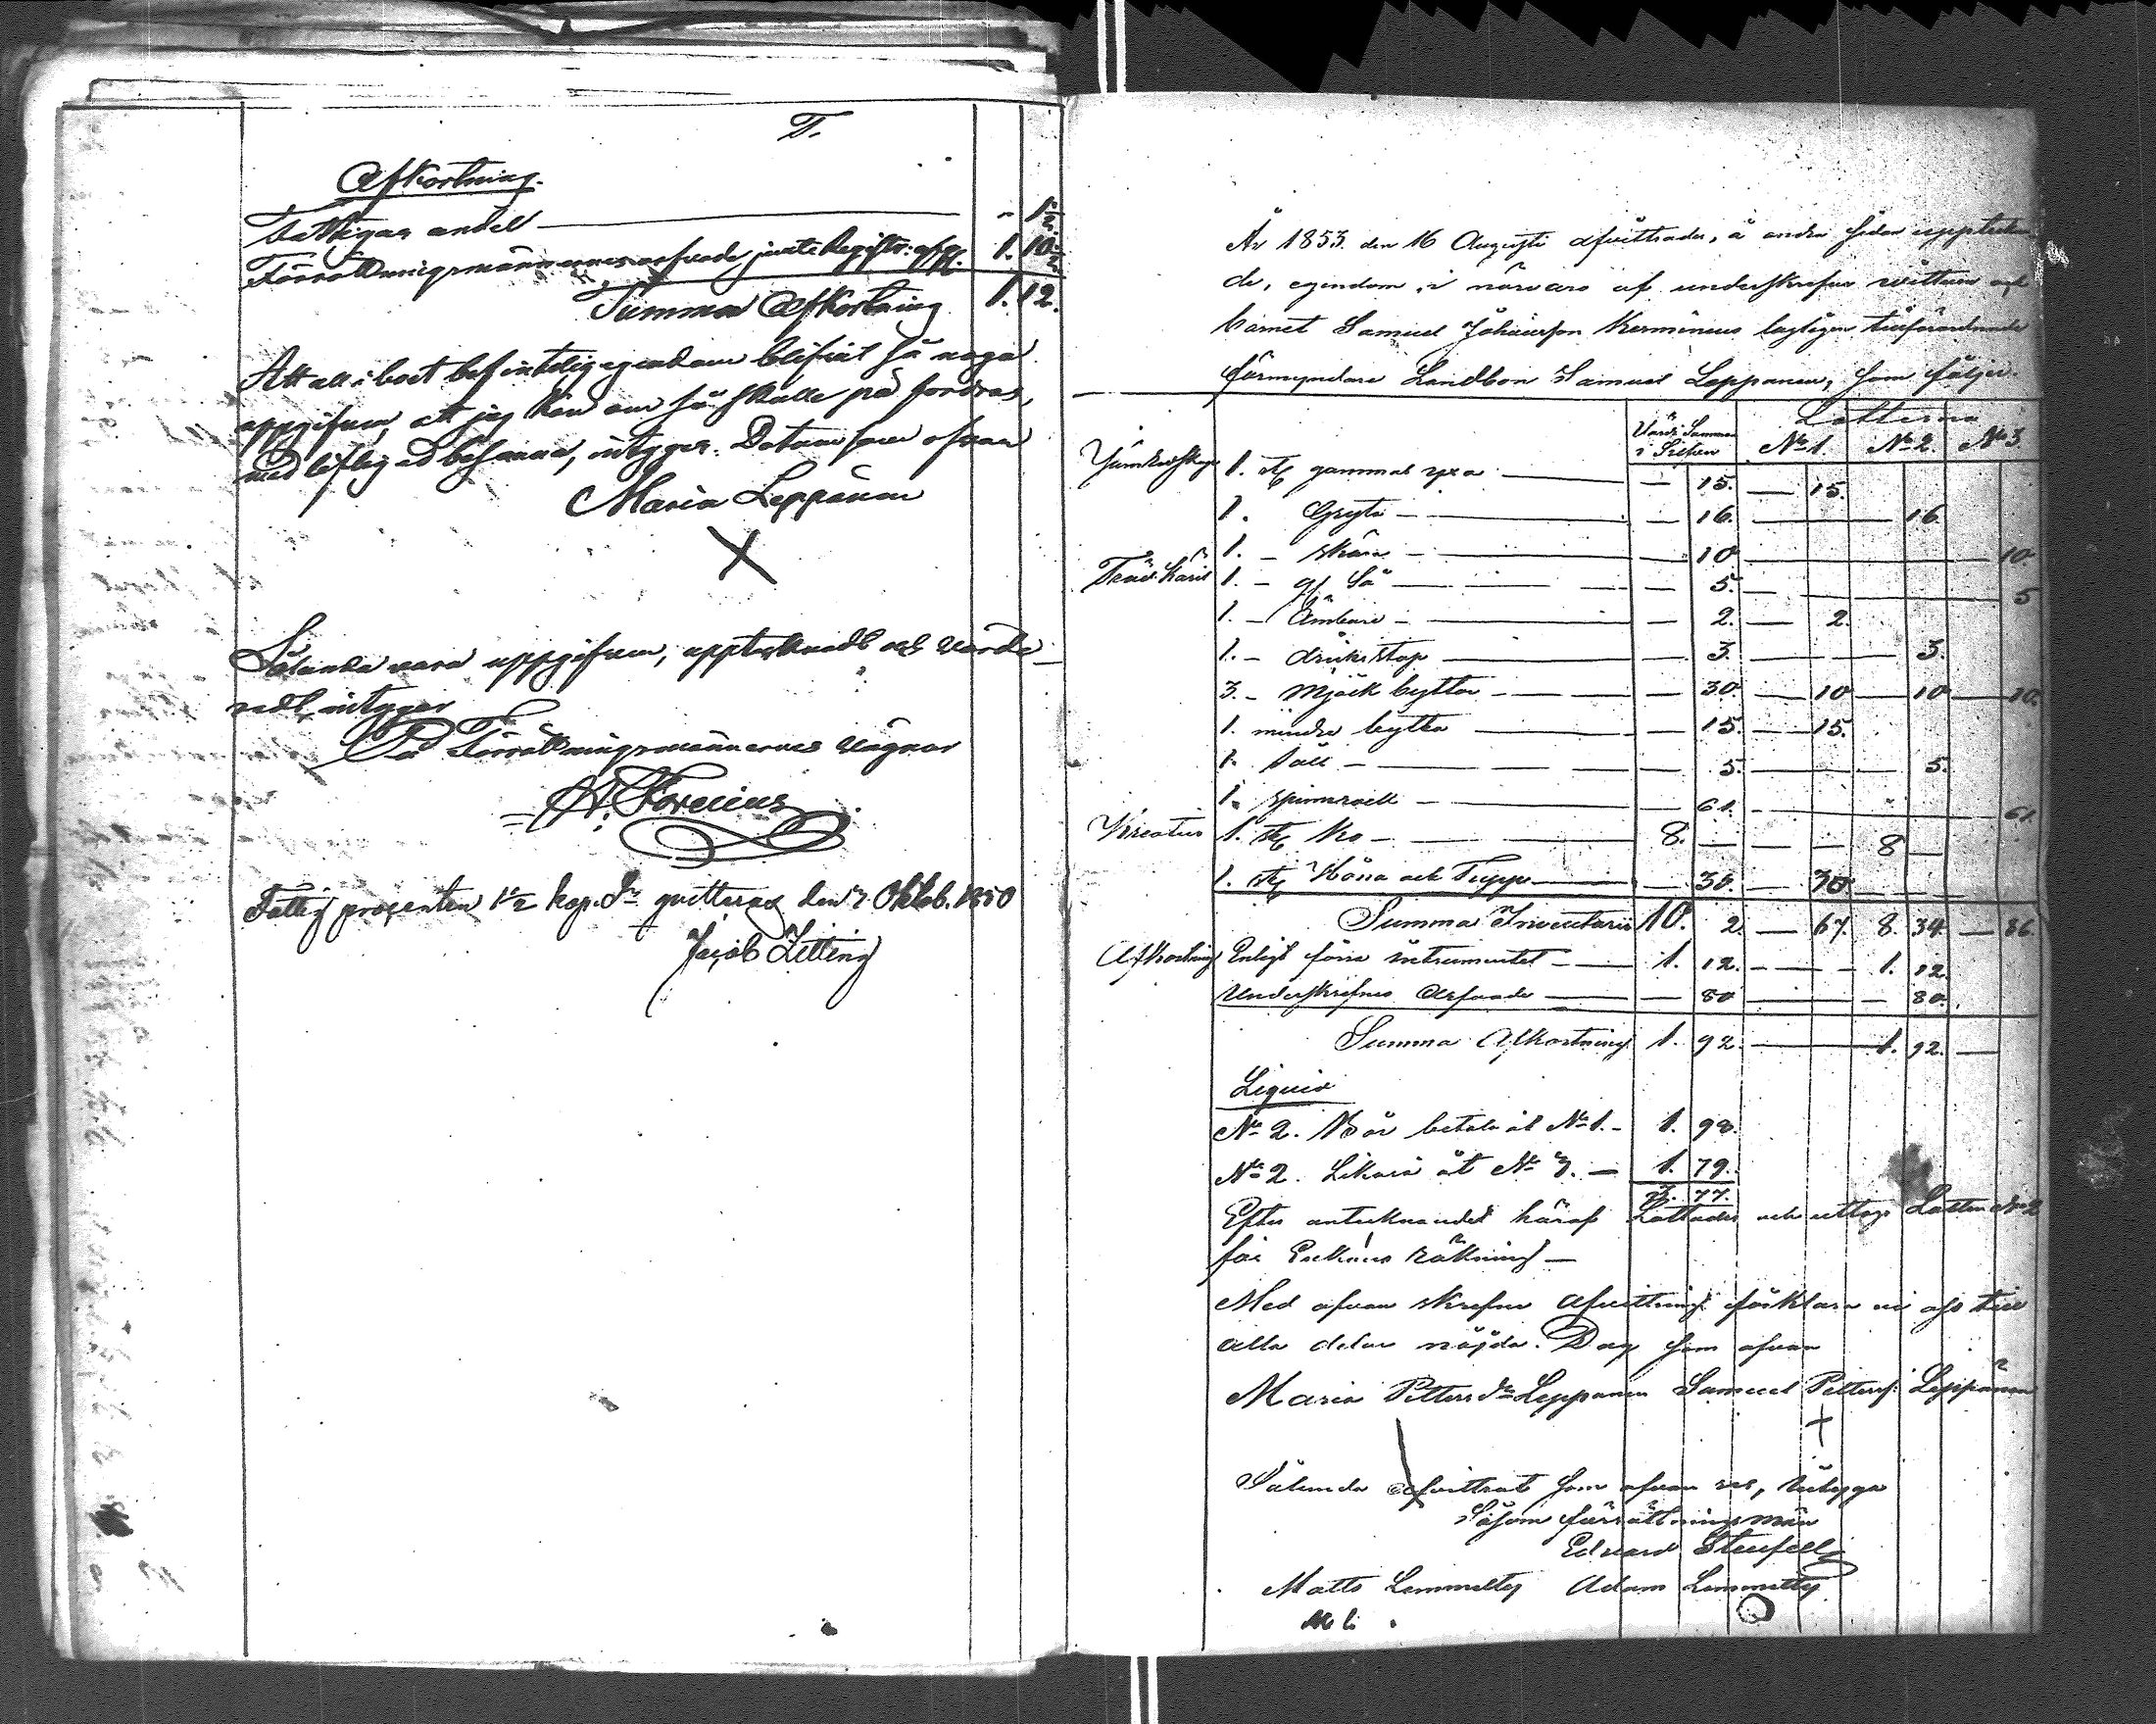 T.
Afkortning.
Fattigas andel — - 1½
Förrättningsmännernes arfvode jemte Registr: afgft. 1. 10½
Summa Afkortning 1. 12.
Att all i boet befintelig egendom blifvit så noga
uppgifven, att jag kan om så skulle på fordras,
med liflig ed besanna, intygar. Datum som ofvan
Maria Leppänen
X
Sålunda vara uppgifven, upptecknadt och värde-
radt, intyger
På Förrättningsmännernes vägnar
A. Forcius
Fattig procenten 1½ kop. Sr qvitteras den 7 Oktob. 1850
Jacob Zitting
År 1853 den 16 Augusti afvittrades, å andra sidan upptekna
de, egendom, i närvaro af underskrefne vittnen och
barnet Samuel Johansson Kerminens lagligen tillförordnade
förmyndare Landbon Samuel Leppänen, som följer.
Lotterna
Värde Summa i Silfver No 1. No 2. No 3.
1. st gammal yxa — 15. — 15.
1. Gryta — 16. — 16
1. - skära — 10 — 10.
Träd Käril 1. - gl Så — 5. — 5
1. - Ämbare — 2. — 2.
1. - drickstop — 3. — 3.
3. - Mjölk byttor — 30. — 10 — 10 — 10.
1. mindre bytta — 15. — 15.
1. Såll — 5. — 5.
1. spinnrock — 61. — 61.
Kreatur 1. st Ko — 8. — 8 —
1. st Höna och Tupp — 30. — 30
Summa Inventarii 10. 2. — 67. 8. 34. — 86.
Afkortning Enligt förra instrumentet — 1. 12. — 1. 12.
Underskrefnes Arfvode — 80 — 80.
Summa Afkortning 1. 92. — 1. 92. —
Liquid
No 2. Bör betala åt No 1. - 1. 98.
No 2. Likaså åt No 3. — 1. 79.
3. 77.
Efter antecknandet häraf Lottades och uttogs Lotten No 2
för Enkans räkning —
Med ofvan skrefne Afvittring förklara vi oss till
alla delar nöjda. Dag som ofvan
Maria Pettersdr Leppänen Samuel Petterss. Leppänen
+
Sålunda afvittrat som ofvan ses, intyga
Såsom förrättnings män
Edvard Stenfelt
Matts Lemmetty Adam Lemmetty
M L